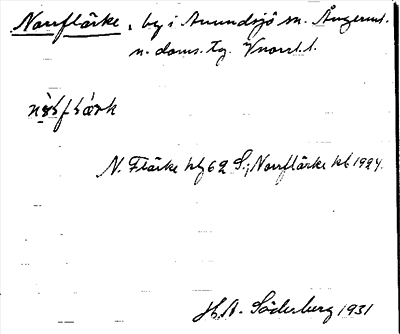 Norrflärke, by i Anundsjö sn. Ångerml.
n. doms. tg. Vnorrl. l.
N. Flärke kb 62 S.; Norrflärke kb 1924.
H. A. Söderberg 1931